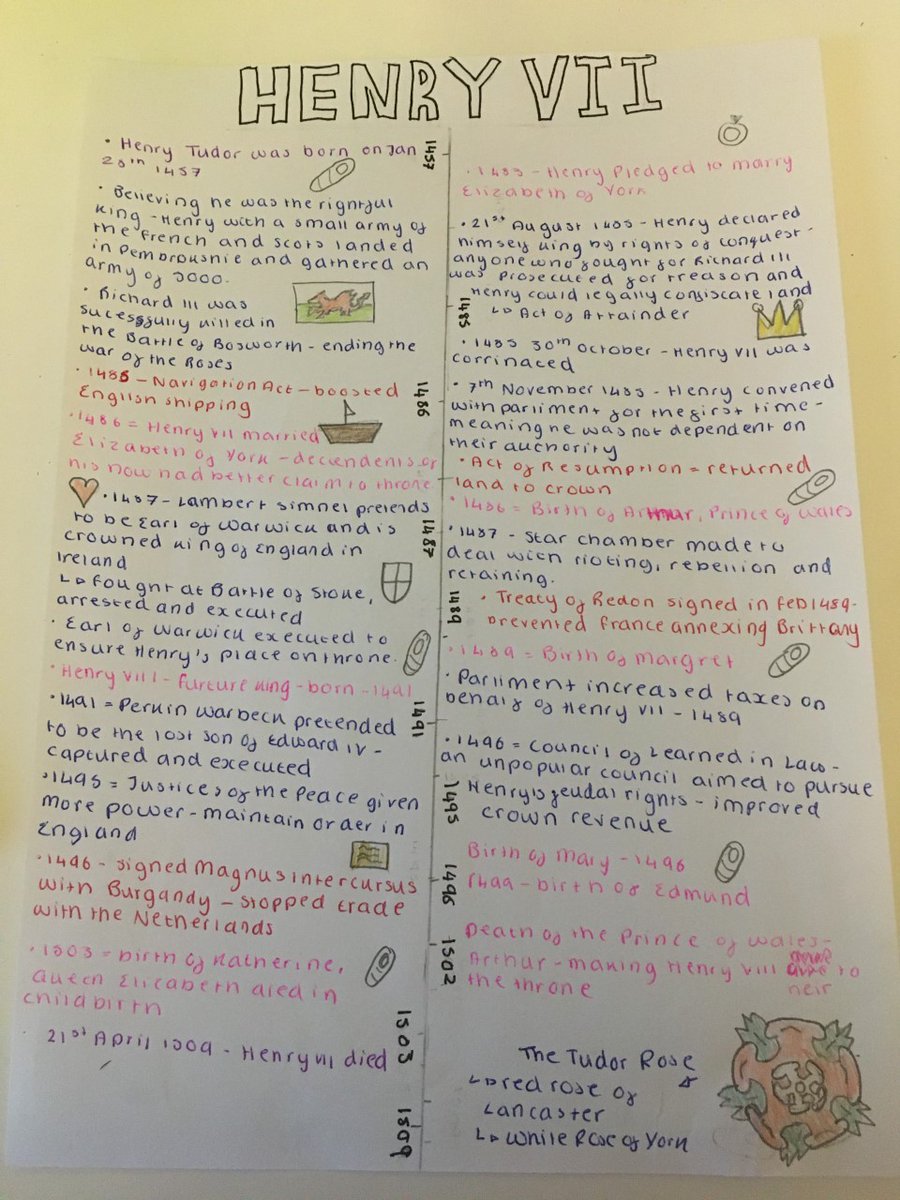 HENRY VII
• Henry Tudor was born on Jan
28th 1457
• Believing he was the rightful
king - Henry with a small army of
the french and scots landed
in Pembroushie and gathered an
army of 5000.
• Richard III was
sucessfully killed in
the Battle of Bosworth - ending the
war of the Roses
• 1485 - Navigation Act - boosted
English shipping
• 1486 = Henry VII married
Elizabeth of York - decendents of
his now had better claim to throne
• 1487 - Lambert simnel pretends
to be Earl of Warwick and is
crowned king of England in
Ireland
↳ fought at Battle of Stoke,
arrested and executed
• Earl of Warwick executed to
ensure Henry's place on throne.
• Henry VIII - furture king - born - 1491
• 1491 = Perkin Warbeck pretended
to be the lost son of Edward IV -
captured and executed
• 1495 = Justices of the Peace given
more power - maintain order in
England
• 1496 - signed Magnus intercursus
with Burgandy - stopped trade
with the Netherlands
• 1503 = birth of Katherine,
Queen Elizabeth died in
childbirth
21st April 1509 - Henry VII died
1457
1485
1486
1487
1489
1491
1495
1496
1502
1503
1509
• 1483 - Henry Pledged to marry
Elizabeth of York
• 21st August 1485 - Henry declared
himself king by rights of conquest -
anyone who fought for Richard III
was prosecuted for treason and
Henry could legally confiscate land
↳ Act of Attainder
• 1485 30th October - Henry VII was
corrinated
• 7th November 1485 - Henry convened
with parliment for the first time -
meaning he was not dependent on
their authority
• Act of Resumption = returned
land to crown
• 1486 = Birth of Arthur, Prince of Wales
• 1487 - Star chamber made to
deal with rioting, rebellion and
retaining.
• Treaty of Redon signed in feb 1489 -
prevented france annexing Brittany
• 1489 = Birth of margret
• Parliment increased taxes on
behalf of Henry VII - 1489
• 1496 = Council of Learned in Law -
an unpopular council aimed to pursue
Henry's feudal rights - improved
crown revenue
Birth of Mary - 1496
1499 - birth of Edmund
Death of the Prince of Wales -
Arthur - making Henry VIII heir to
the throne
The Tudor Rose
↳ red rose of
Lancaster
↳ White Rose of York